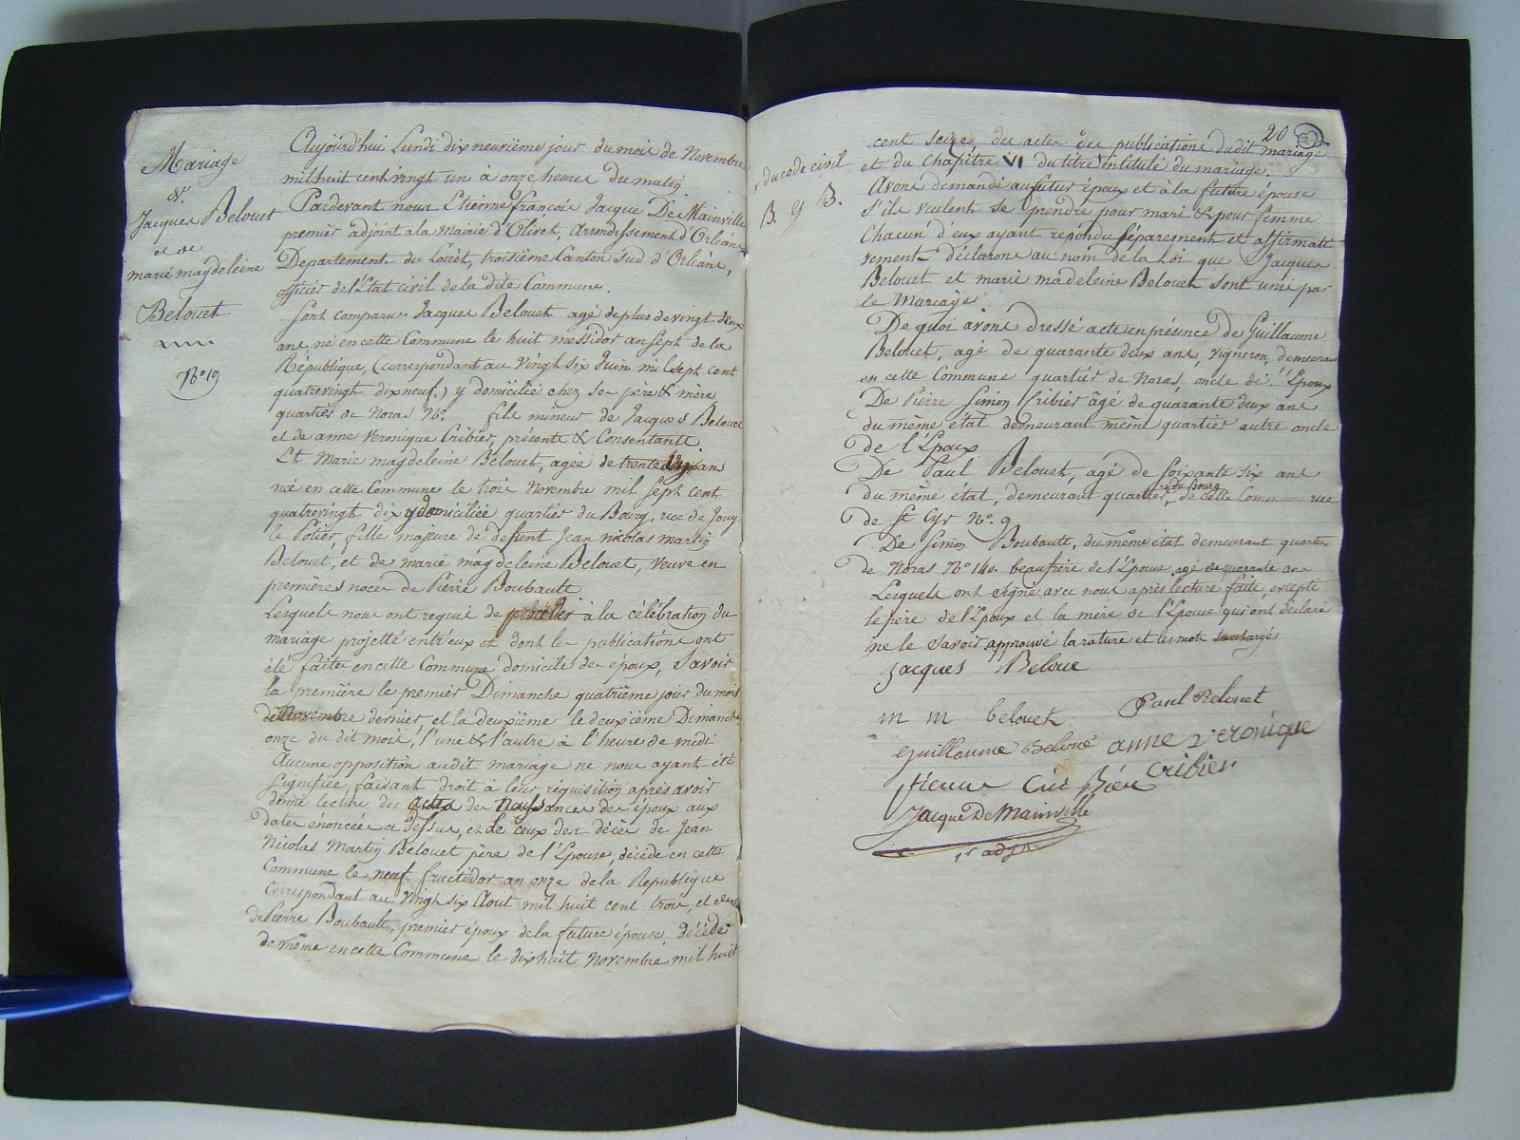 Mariage
de
Jacques Belouet
et de
marie magdeleine
Belouet
N.º 19
Aujourd'hui Lundi dix neuvième jour du mois de Novembre
mil huit cent vingt un à onze heures du matin
Pardevant nous Etienne françois Jacque De Mainville
premier adjoint a la Mairie d'Olivet, Arrondissement d'Orléans
Departement du Loiret, troisième Canton sud d'Orléans,
officier de l'Etat civil de la dite Commune.
Sont comparus Jacques Belouet agé de plus de vingt deux
ans, né en cette Commune le huit messidor an sept de la
République, (correspondant au vingt six Juin mil sept cent
quatrevingt dix neuf,) y domicilié chez ses père & mère
quartier de Noras N.º fils mineur de Jacques Belouet
et de anne Veronique Cribier, présents & Consentants
Et Marie magdeleine Belouet, agée de trente un ans
née en cette Commune le trois Novembre mil sept cent
quatrevingt dix y domiciliée quartier du Bourg, rue de Jouy
le Potier, fille majeure de défunt Jean nicolas martin
Belouet, et de marie magdeleine Belouet, veuve en
premières noces de Pierre Boubault
Lesquels nous ont requis de procéder à la célébration du
mariage projetté entr'eux et dont les publications ont
été faites en cette Commune domicile des époux, Savoir
la première le premier Dimanche quatrième jour du mois
de Novembre dernier, et la deuxième le deuxième Dimanche
onze du dit mois, l'une & l'autre à l'heure de midi
Aucune opposition audit mariage ne nous ayant été
signifiée, faisant droit à leur réquisition après avoir
donné lecture des actes de Naissances des époux aux
dates énoncées ci dessus, et de ceux des décès de Jean
Nicolas Martin Belouet père de l'Epouse, décédé en cette
Commune le neuf fructidor an onze de la République
Correspondant au Vingt six Aout mil huit cent trois, et celui
de Pierre Boubault, premier époux de la future épouse, décédé
de même en cette Commune le dix huit Novembre mil huit
20
cent seize, des actes des publications dudit mariage
et du Chapitre VI du titre intitulé du mariage.
du code civil
B. B.
Avons demandé au futur époux et à la future épouse
s'ils veulent se prendre pour mari & pour femme
Chacun d'eux ayant répondu séparement et affirmati
vement Déclarons au nom de la Loi que Jacques
Belouet et marie madeleine Belouet sont unis par
le Mariage
De quoi avons dressé acte en présence de Guillaume
Belouet, agé de quarante deux ans, vigneron, demeurant
en cette Commune quartier de Noras, oncle de l'Epoux
De Pierre Simon Cribier âgé de quarante deux ans
du même état demeurant même quartier autre oncle
de l'Epoux
De Paul Belouet, agé de soixante six ans
du même état, demeurant quartier du Bourg de cette Commune rue
de St Cyr N.º 9
De Simon Boubault, du même état demeurant quartier
de Noras N.º 140. beaufrère de l'Epouse agé de quarante ans
Lesquels ont signé avec nous après lecture faite, excepté
le père de l'Epoux et la mère de l'Epouse qui ont déclaré
ne le savoir approuvé la rature et les mots surchargés
Jacques Beloue
m m belouet Paul Belouet
guillaume Beloué anne veronique
Cribier
Jacque De Mainville
1.er adj.t